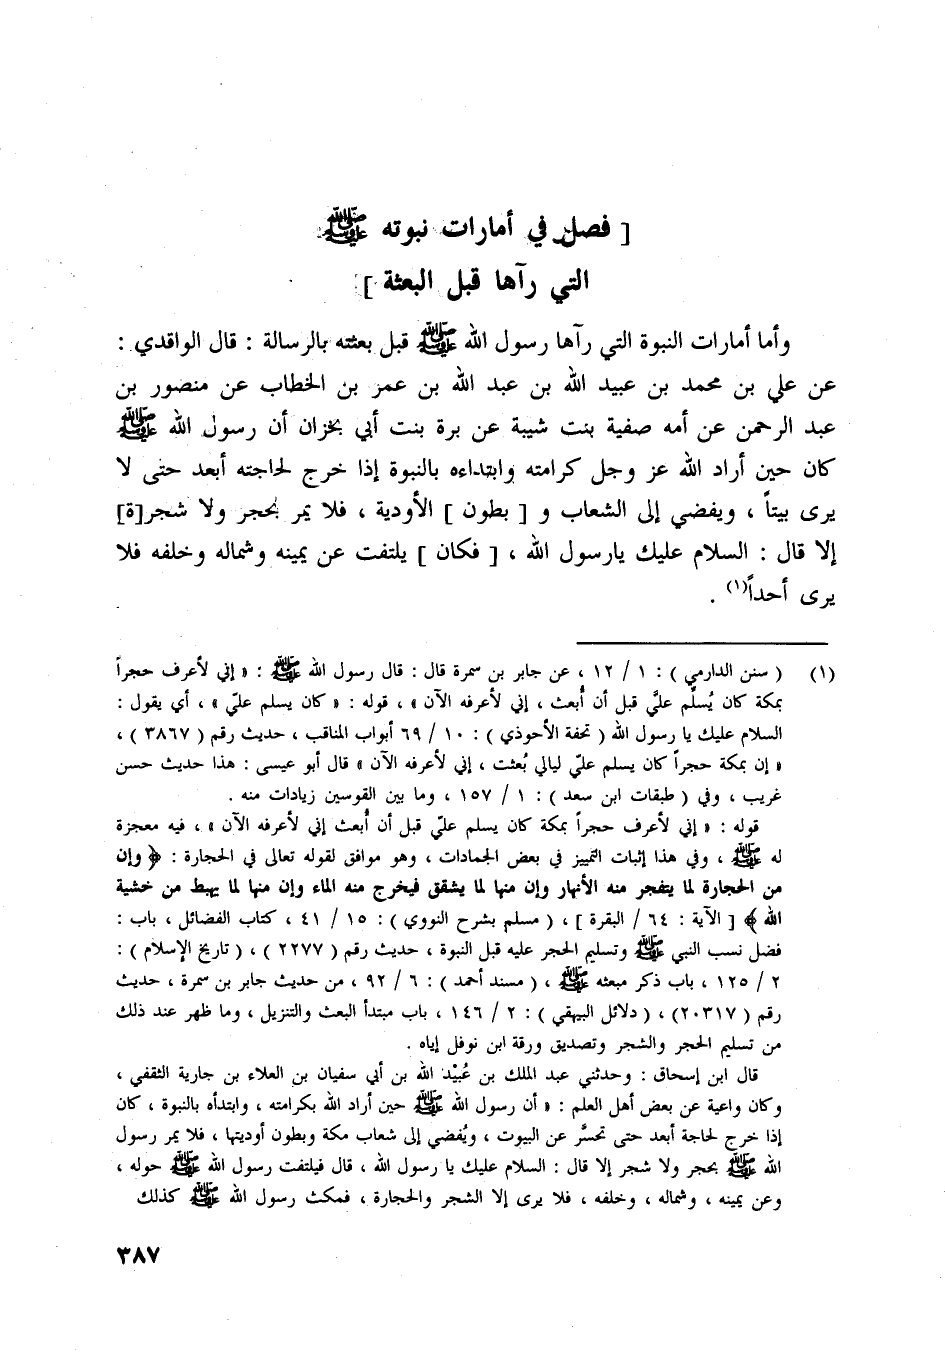 [ فصل في أمارات نبوته ﷺ
التي رآها قبل البعثة ]
وأما أمارات النبوة التي رآها رسول الله ﷺ قبل بعثته بالرسالة : قال الواقدي :
عن علي بن محمد بن عبيد الله بن عبد الله بن عمر بن الخطاب عن منصور بن
عبد الرحمن عن أمه صفية بنت شيبة عن برة بنت أبي بخزان أن رسول الله ﷺ
كان حين أراد الله عز وجل كرامته وابتداءه بالنبوة إذا خرج لحاجته أبعد حتى لا
يرى بيتاً ، ويفضي إلى الشعاب و [ بطون ] الأودية ، فلا يمر بحجر ولا شجر[ة]
إلا قال : السلام عليك يارسول الله ، [ فكان ] يلتفت عن يمينه وشماله وخلفه فلا
يرى أحداً(١) .
(١) ( سنن الدارمي ) : ١ / ١٢ ، عن جابر بن سمرة قال : قال رسول الله ﷺ : « إني لأعرف حجراً
بمكة كان يُسلِّم عليَّ قبل أن أُبعث ، إني لأعرفه الآن » ، قوله : « كان يسلم عليّ » ، أي يقول :
السلام عليك يا رسول الله ( تحفة الأحوذي ) : ١٠ / ٦٩ أبواب المناقب ، حديث رقم ( ٣٨٦٧ ) ،
« إن بمكة حجراً كان يسلم عليّ ليالي بُعثت ، إني لأعرفه الآن » قال أبو عيسى : هذا حديث حسن
غريب ، وفي ( طبقات ابن سعد ) : ١ / ١٥٧ ، وما بين القوسين زيادات منه .
قوله : « إني لأعرف حجراً بمكة كان يسلم عليّ قبل أن أُبعث إني لأعرفه الآن » ، فيه معجزة
له ﷺ ، وفي هذا إثبات التمييز في بعض الجمادات ، وهو موافق لقوله تعالى في الحجارة : ﴿ وإن
من الحجارة لما يتفجر منه الأنهار وإن منها لما يشقق فيخرج منه الماء وإن منها لما يهبط من خشية
الله ﴾ [ الآية : ٦٤ / البقرة ] ، ( مسلم بشرح النووي ) : ١٥ / ٤١ ، كتاب الفضائل ، باب :
فضل نسب النبي ﷺ وتسليم الحجر عليه قبل النبوة ، حديث رقم ( ٢٢٧٧ ) ، ( تاريخ الإسلام ) :
٢ / ١٢٥ ، باب ذكر مبعثه ﷺ ، ( مسند أحمد ) : ٦ / ٩٢ ، من حديث جابر بن سمرة ، حديث
رقم ( ٢٠٣١٧) ، ( دلائل البيهقي ) : ٢ / ١٤٦ ، باب مبتدأ البعث والتنزيل ، وما ظهر عند ذلك
من تسليم الحجر والشجر وتصديق ورقة ابن نوفل إياه .
قال ابن إسحاق : وحدثني عبد الملك بن عُبيْد الله بن أبي سفيان بن العلاء بن جارية الثقفي ،
وكان واعية عن بعض أهل العلم : « أن رسول الله ﷺ حين أراد الله بكرامته ، وابتدأه بالنبوة ، كان
إذا خرج لحاجة أبعد حتى تحسَّر عن البيوت ، ويُفضي إلى شعاب مكة وبطون أوديتها ، فلا يمر رسول
الله ﷺ بحجر ولا شجر إلا قال : السلام عليك يا رسول الله ، قال فيلتفت رسول الله ﷺ حوله ،
وعن يمينه ، وشماله ، وخلفه ، فلا يرى إلا الشجر والحجارة ، فمكث رسول الله ﷺ كذلك
٣٨٧